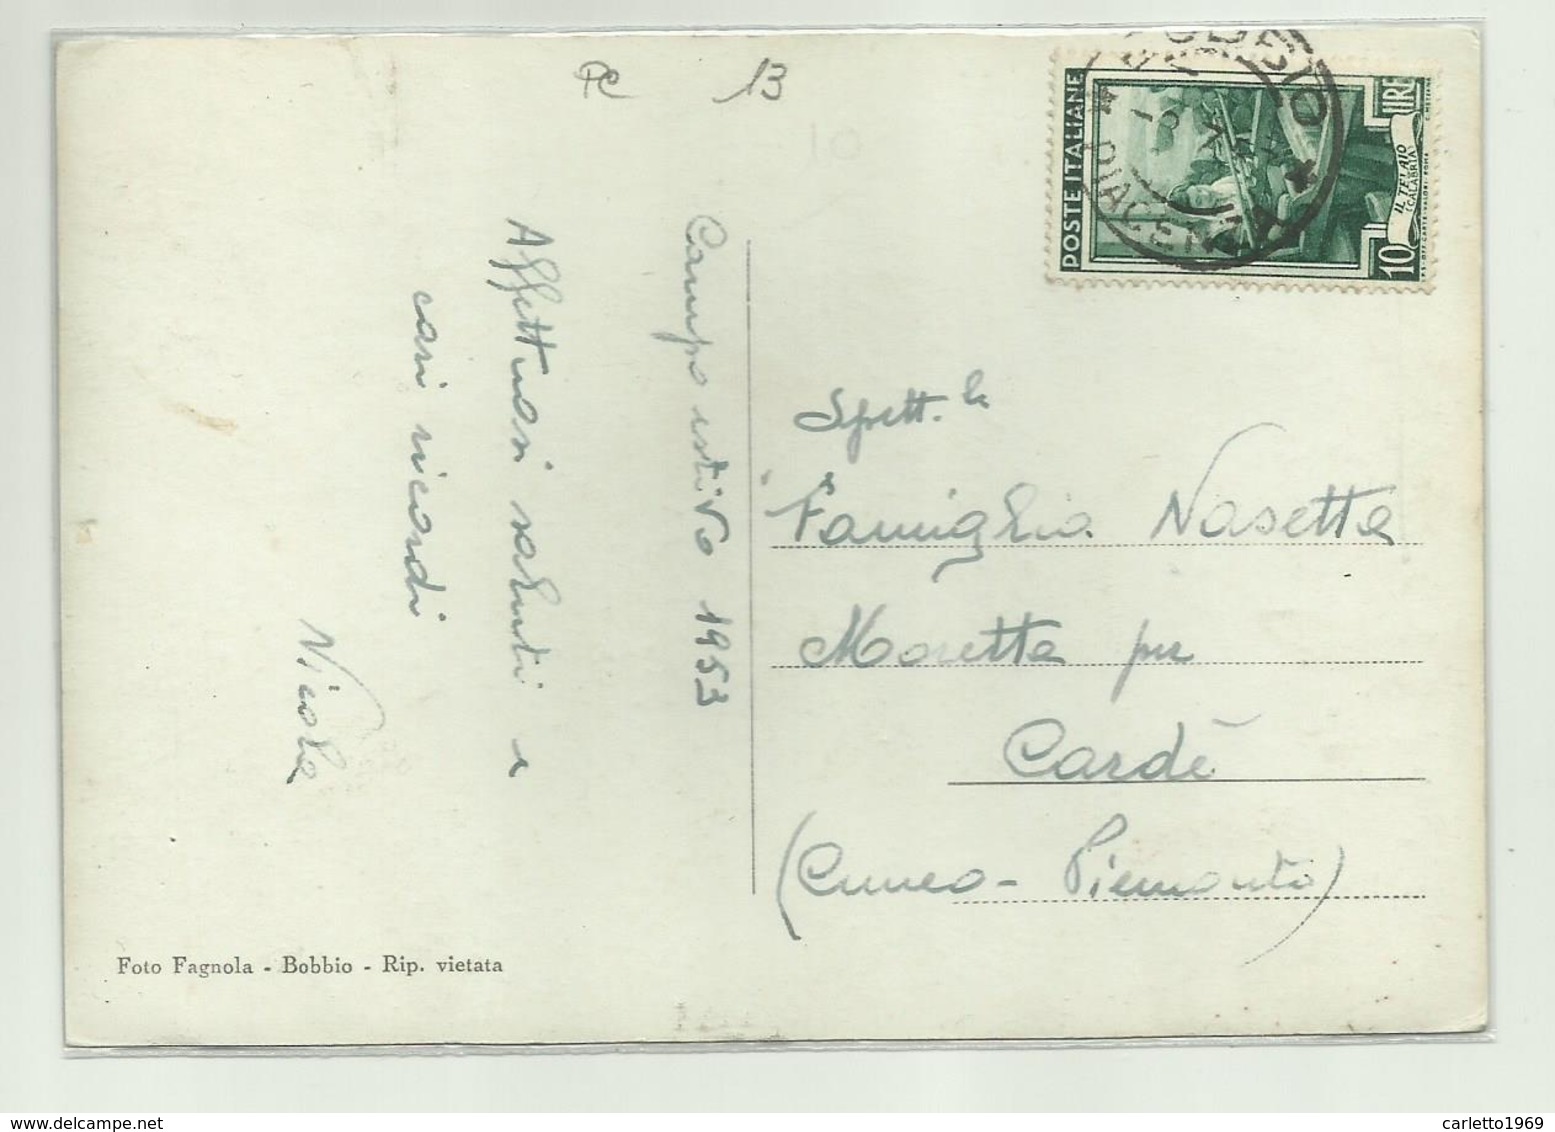 PC 13
10
Campo estivo 1953
Affettuosi saluti e
cari ricordi
Nicola
POSTE ITALIANE
10 LIRE
IL TELAIO
(CALABRIA)
PIACENZA
Spett.le
Famiglia Nasetta
Moretta per
Cardè
(Cuneo - Piemonte)
Foto Fagnola - Bobbio - Rip. vietata
carletto1969